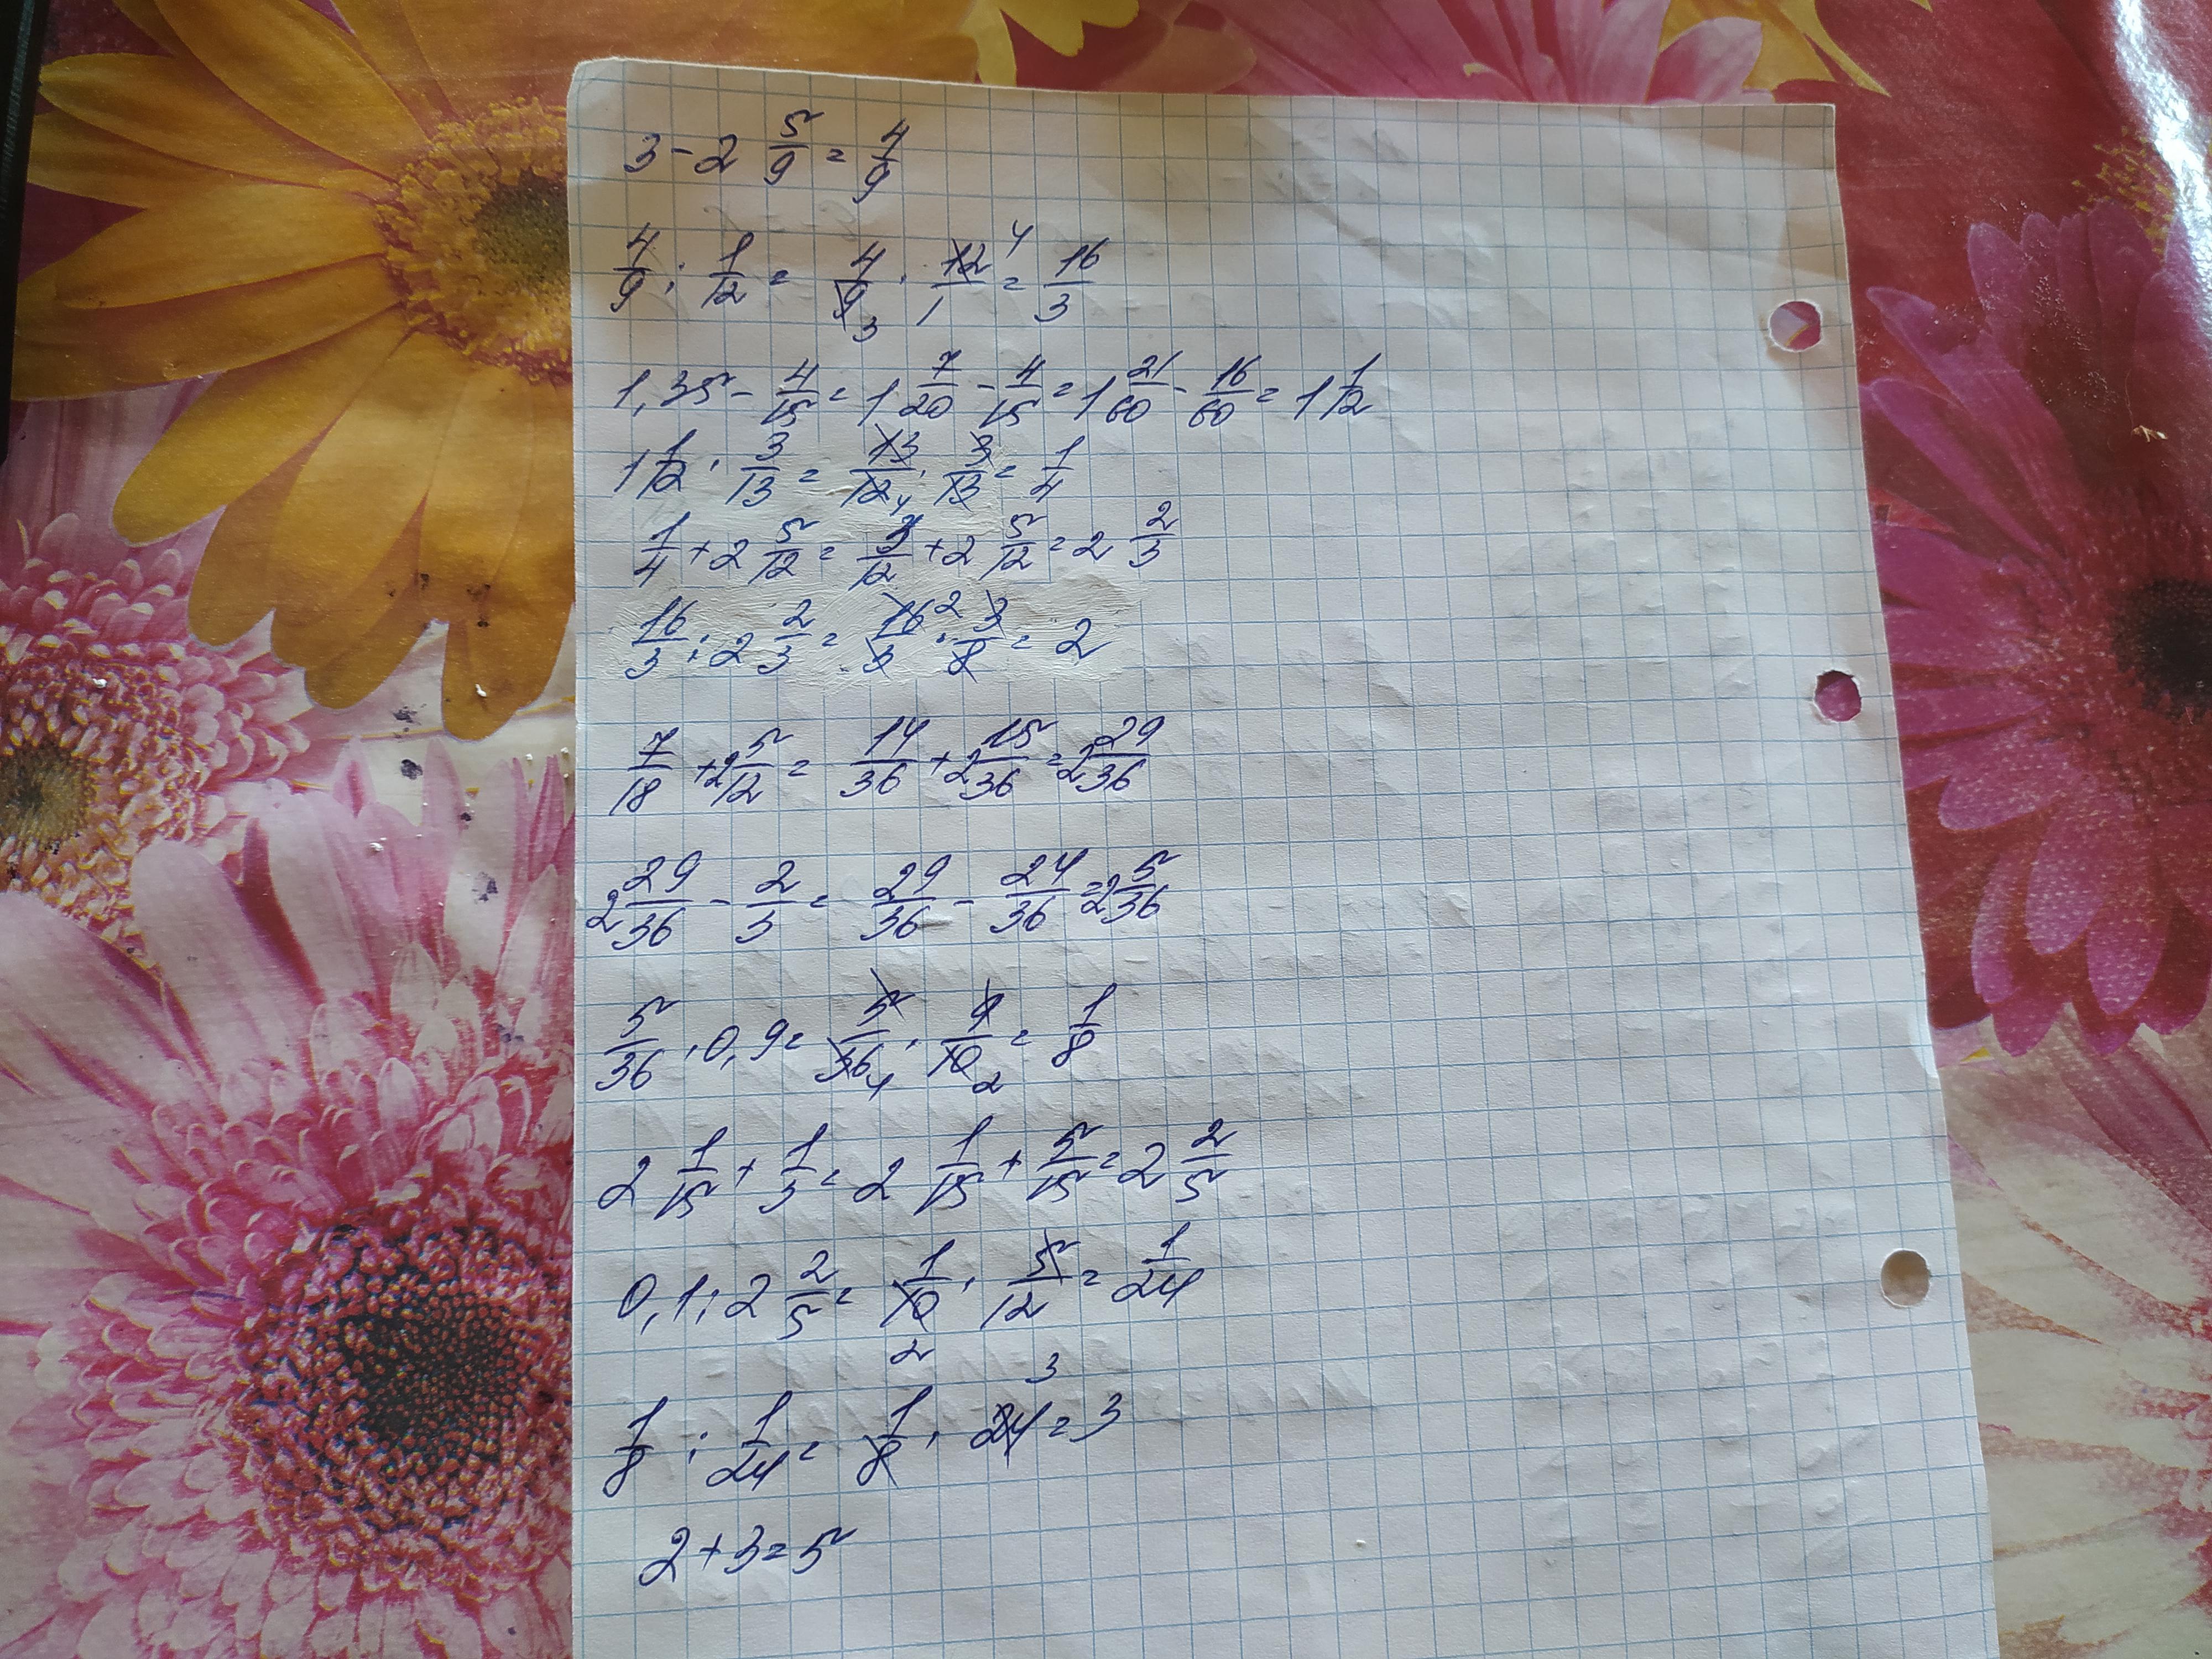 3 - 2 5/9 = 4/9
4/9 : 1/12 = 4/9 3 · 12 4/1 = 16/3
1,35 - 4/15 = 1 7/20 - 4/15 = 1 21/60 - 16/60 = 1 1/12
1 1/12 · 3/13 = 13/12 4 · 3/13 = 1/4
1/4 + 2 5/12 = 3/12 + 2 5/12 = 2 2/3
16/3 : 2 2/3 = 16 2/3 · 3/8 = 2
7/18 + 2 5/12 = 14/36 + 2 15/36 = 2 29/36
2 29/36 - 2/3 = 29/36 - 24/36 = 2 5/36
5/36 · 0,9 = 5/36 4 · 9/10 2 = 1/8
2 1/15 + 1/3 = 2 1/15 + 5/15 = 2 2/5
0,1 : 2 2/5 = 1/10 2 · 5/12 = 1/24
1/8 : 1/24 = 1/8 · 24 3 = 3
2 + 3 = 5